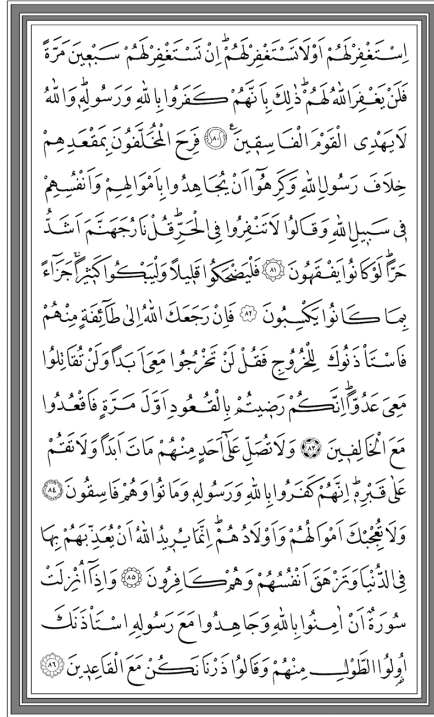 اِسْتَغْفِرْ لَهُمْ اَوْ لَا تَسْتَغْفِرْ لَهُمْۜ اِنْ تَسْتَغْفِرْ لَهُمْ سَبْع۪ينَ مَرَّةً
فَلَنْ يَغْفِرَ اللّٰهُ لَهُمْۜ ذٰلِكَ بِاَنَّهُمْ كَفَرُوا بِاللّٰهِ وَرَسُولِه۪ۜ وَاللّٰهُ
لَا يَهْدِي الْقَوْمَ الْفَاسِق۪ينَ۟ ﴿٨٠﴾ فَرِحَ الْمُخَلَّفُونَ بِمَقْعَدِهِمْ
خِلَافَ رَسُولِ اللّٰهِ وَكَرِهُٓوا اَنْ يُجَاهِدُوا بِاَمْوَالِهِمْ وَاَنْفُسِهِمْ
ف۪ي سَب۪يلِ اللّٰهِ وَقَالُوا لَا تَنْفِرُوا فِي الْحَرِّۜ قُلْ نَارُ جَهَنَّمَ اَشَدُّ
حَرًّاۜ لَوْ كَانُوا يَفْقَهُونَ ﴿٨١﴾ فَلْيَضْحَكُوا قَل۪يلًا وَلْيَبْكُوا كَث۪يرًاۚ جَزَٓاءً
بِمَا كَانُوا يَكْسِبُونَ ﴿٨٢﴾ فَاِنْ رَجَعَكَ اللّٰهُ اِلٰى طَٓائِفَةٍ مِنْهُمْ
فَاسْتَأْذَنُوكَ لِلْخُرُوجِ فَقُلْ لَنْ تَخْرُجُوا مَعِيَ اَبَدًا وَلَنْ تُقَاتِلُوا
مَعِيَ عَدُوًّاۜ اِنَّكُمْ رَض۪يتُمْ بِالْقُعُودِ اَوَّلَ مَرَّةٍ فَاقْعُدُوا
مَعَ الْخَالِف۪ينَ ﴿٨٣﴾ وَلَا تُصَلِّ عَلٰٓى اَحَدٍ مِنْهُمْ مَاتَ اَبَدًا وَلَا تَقُمْ
عَلٰى قَبْرِه۪ۜ اِنَّهُمْ كَفَرُوا بِاللّٰهِ وَرَسُولِه۪ وَمَاتُوا وَهُمْ فَاسِقُونَ ﴿٨٤﴾
وَلَا تُعْجِبْكَ اَمْوَالُهُمْ وَاَوْلَادُهُمْۜ اِنَّمَا يُر۪يدُ اللّٰهُ اَنْ يُعَذِّبَهُمْ بِهَا
فِي الدُّنْيَا وَتَزْهَقَ اَنْفُسُهُمْ وَهُمْ كَافِرُونَ ﴿٨٥﴾ وَاِذَٓا اُنْزِلَتْ
سُورَةٌ اَنْ اٰمِنُوا بِاللّٰهِ وَجَاهِدُوا مَعَ رَسُولِهِ اسْتَأْذَنَكَ
اُو۬لُوا الطَّوْلِ مِنْهُمْ وَقَالُوا ذَرْنَا نَكُنْ مَعَ الْقَاعِد۪ينَ ﴿٨٦﴾